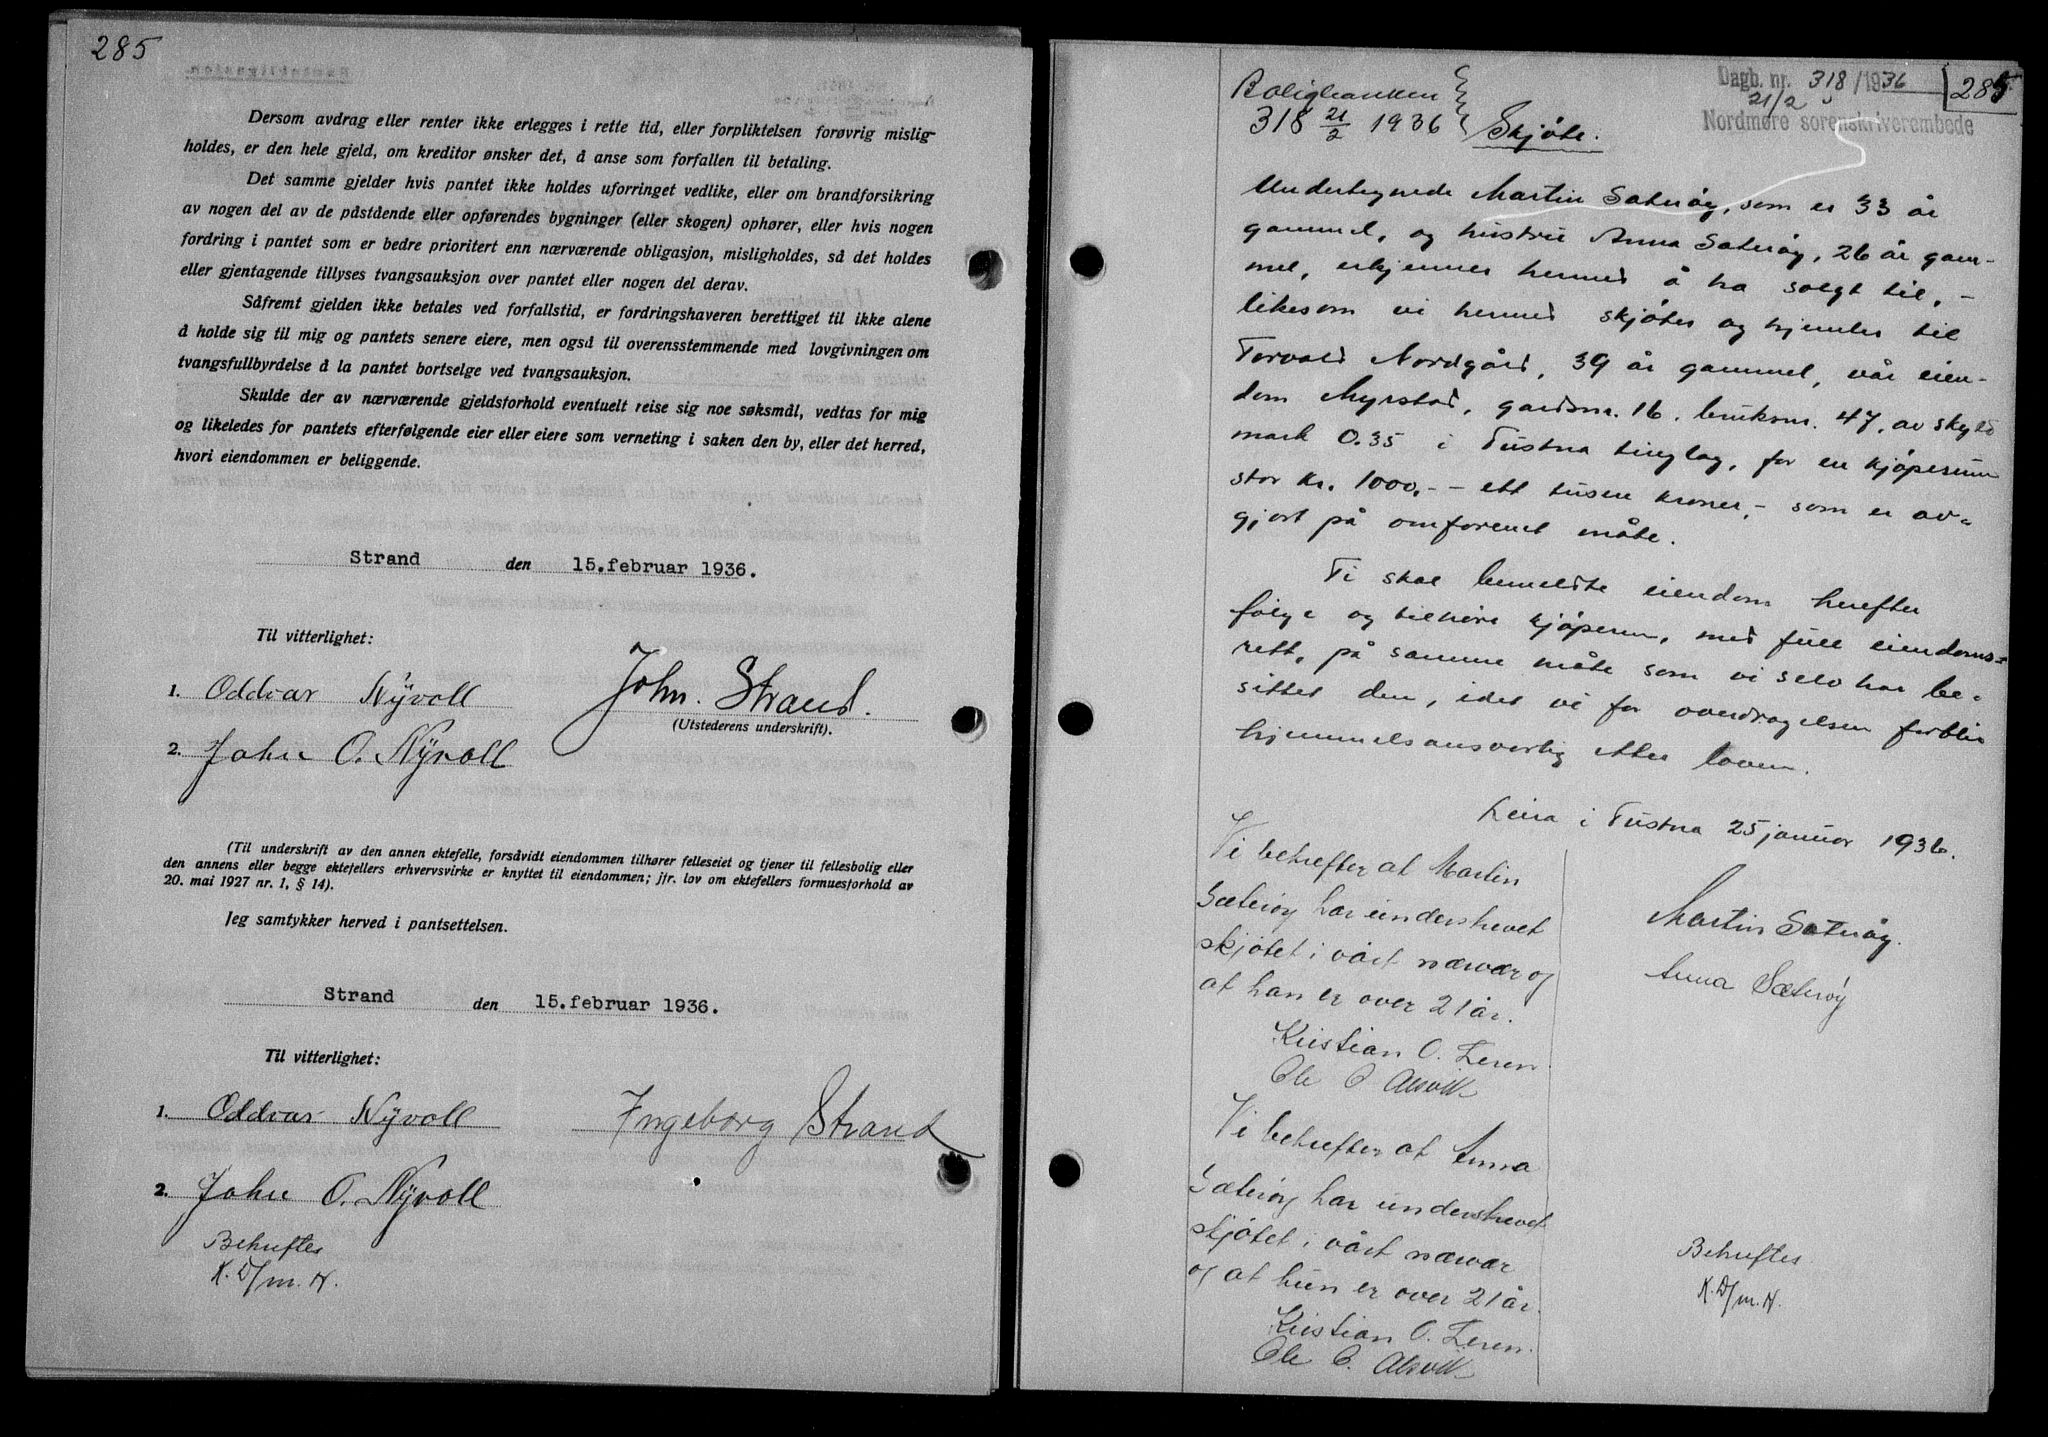 285
Dersom avdrag eller renter ikke erlegges i rette tid, eller forpliktelsen forøvrig mislig-
holdes, er den hele gjeld, om kreditor ønsker det, å anse som forfallen til betaling.
Det samme gjelder hvis pantet ikke holdes uforringet vedlike, eller om brandforsikring
av nogen del av de påstående eller opførendes bygninger (eller skogen) ophører, eller hvis nogen
fordring i pantet som er bedre prioritert enn nærværende obligasjon, misligholdes, så det holdes
eller gjentagende tillyses tvangsauksjon over pantet eller nogen del derav.
Såfremt gjelden ikke betales ved forfallstid, er fordringshaveren berettiget til ikke alene
å holde sig til mig og pantets senere eiere, men også til overensstemmende med lovgivningen om
tvangsfullbyrdelse å la pantet bortselge ved tvangsauksjon.
Skulde der av nærværende gjeldsforhold eventuelt reise sig noe søksmål, vedtas for mig
og likeledes for pantets efterfølgende eier eller eiere som verneting i saken den by, eller det herred,
hvori eiendommen er beliggende.
Strand den 15.februar 1936.
Til vitterlighet:
1. Oddvar Nÿvoll
John. Strand.
(Utstederens underskrift).
2. John O. Nÿvoll
(Til underskrift av den annen ektefelle, forsåvidt eiendommen tilhører felleseiet og tjener til fellesbolig eller
den annens eller begge ektefellers erhvervsvirke er knyttet til eiendommen; jfr. lov om ektefellers formuesforhold av
20. mai 1927 nr. 1, § 14).
Jeg samtykker herved i pantsettelsen.
Strand den 15.februar 1936.
Til vitterlighet:
1. Oddvar Nÿvoll
Ingeborg Strand
2. John O. Nÿvoll
Behreftes
K. D/m. N.
Dagb. nr. 318/1936
285
21/2
Nordmøre sorenskriverembede
Boligbanken
318 21/2 1936
Skjøte.
Undertegnede Martin Sæterøy, som er 33 år
gammel, og hustru Anna Sæterøy, 26 år gam-
mel, erkjenner herved å ha solgt til, -
likesom vi herved skjøter og hjemler til
Torvald Nordgård, 39 år gammel, vår eien-
dom Myrstad, gardsnr. 16. bruksnr. 47, av skyld
mark 0.35 i Tustna tinglag, for en kjøpesum
stor kr. 1000,- - ett tusen kroner, - som er av-
gjort på omforenet måte.
Ti skal bemeldte eiendom herefter
følge og tilhøre kjøperen, med full eiendoms-
rett, på samme måte som vi selv har be-
sittet den, idet vi for overdragelsen forblir
hjemmelsansvarlig etter loven.
Leira i Tustna 25 januar 1936.
Vi betrefter at Martin
Sæterøy har underskrevet
skjøtet i vårt nærvær og
at han er over 21 år.
Kristian O. Leren.
Ole C. Alsvik
Martin Sæterøy.
Anna Sæterøy
Vi betrefter at Anna
Sæterøy har underskrevet
skjøtet i vårt nærvær
og at hun er over 21 år.
Kristian O. Leren.
Ole C. Alsvik
Behreftes
K. D/m. N.